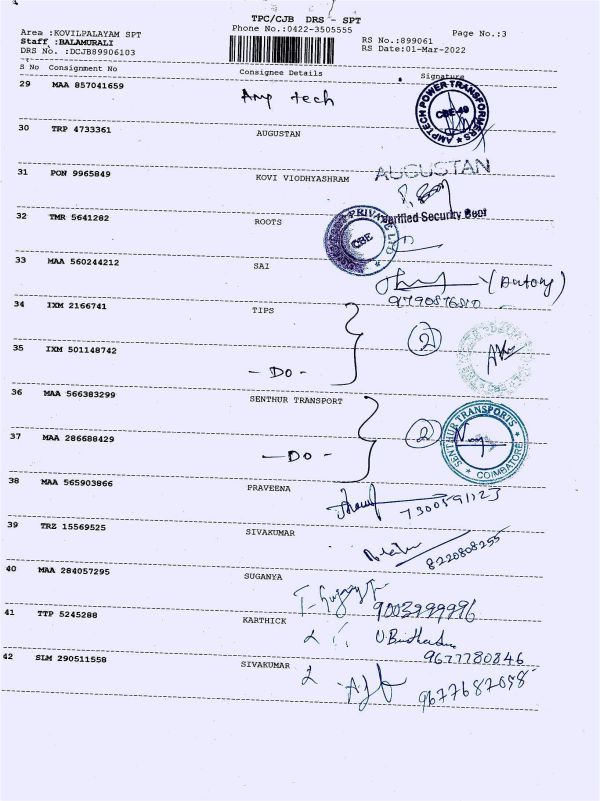 TPC/CJB DRS - SPT
Area :KOVILPALAYAM SPT Phone No.:0422-3505555 Page No.:3
Staff :BALAMURALI RS No.:899061
DRS No. :DCJB89906103 RS Date:01-Mar-2022
S No Consignment No Consignee Details Signature
29 MAA 857041659 Amp tech
AMPTECH POWER TRANSFORMERS CBE-49
30 TRP 4733361 AUGUSTAN
AUGUSTAN
31 PON 9965849 KOVI VIODHYASHRAM
32 TMR 5641282 ROOTS
PRIVATE LTD CBE
Verified Security Dept
33 MAA 560244212 SAI
(Antony)
9790876810
34 IXM 2166741 TIPS
2
35 IXM 501148742 - DO -
36 MAA 566383299 SENTHUR TRANSPORT
2
SENTHUR TRANSPORTS COIMBATORE
37 MAA 286688429 - DO -
38 MAA 565903866 PRAVEENA
7300591123
39 TRZ 15569525 SIVAKUMAR
8220808255
40 MAA 284057295 SUGANYA
9003999996
41 TTP 5245288 KARTHICK
9677780846
42 SLM 290511558 SIVAKUMAR
9677687058